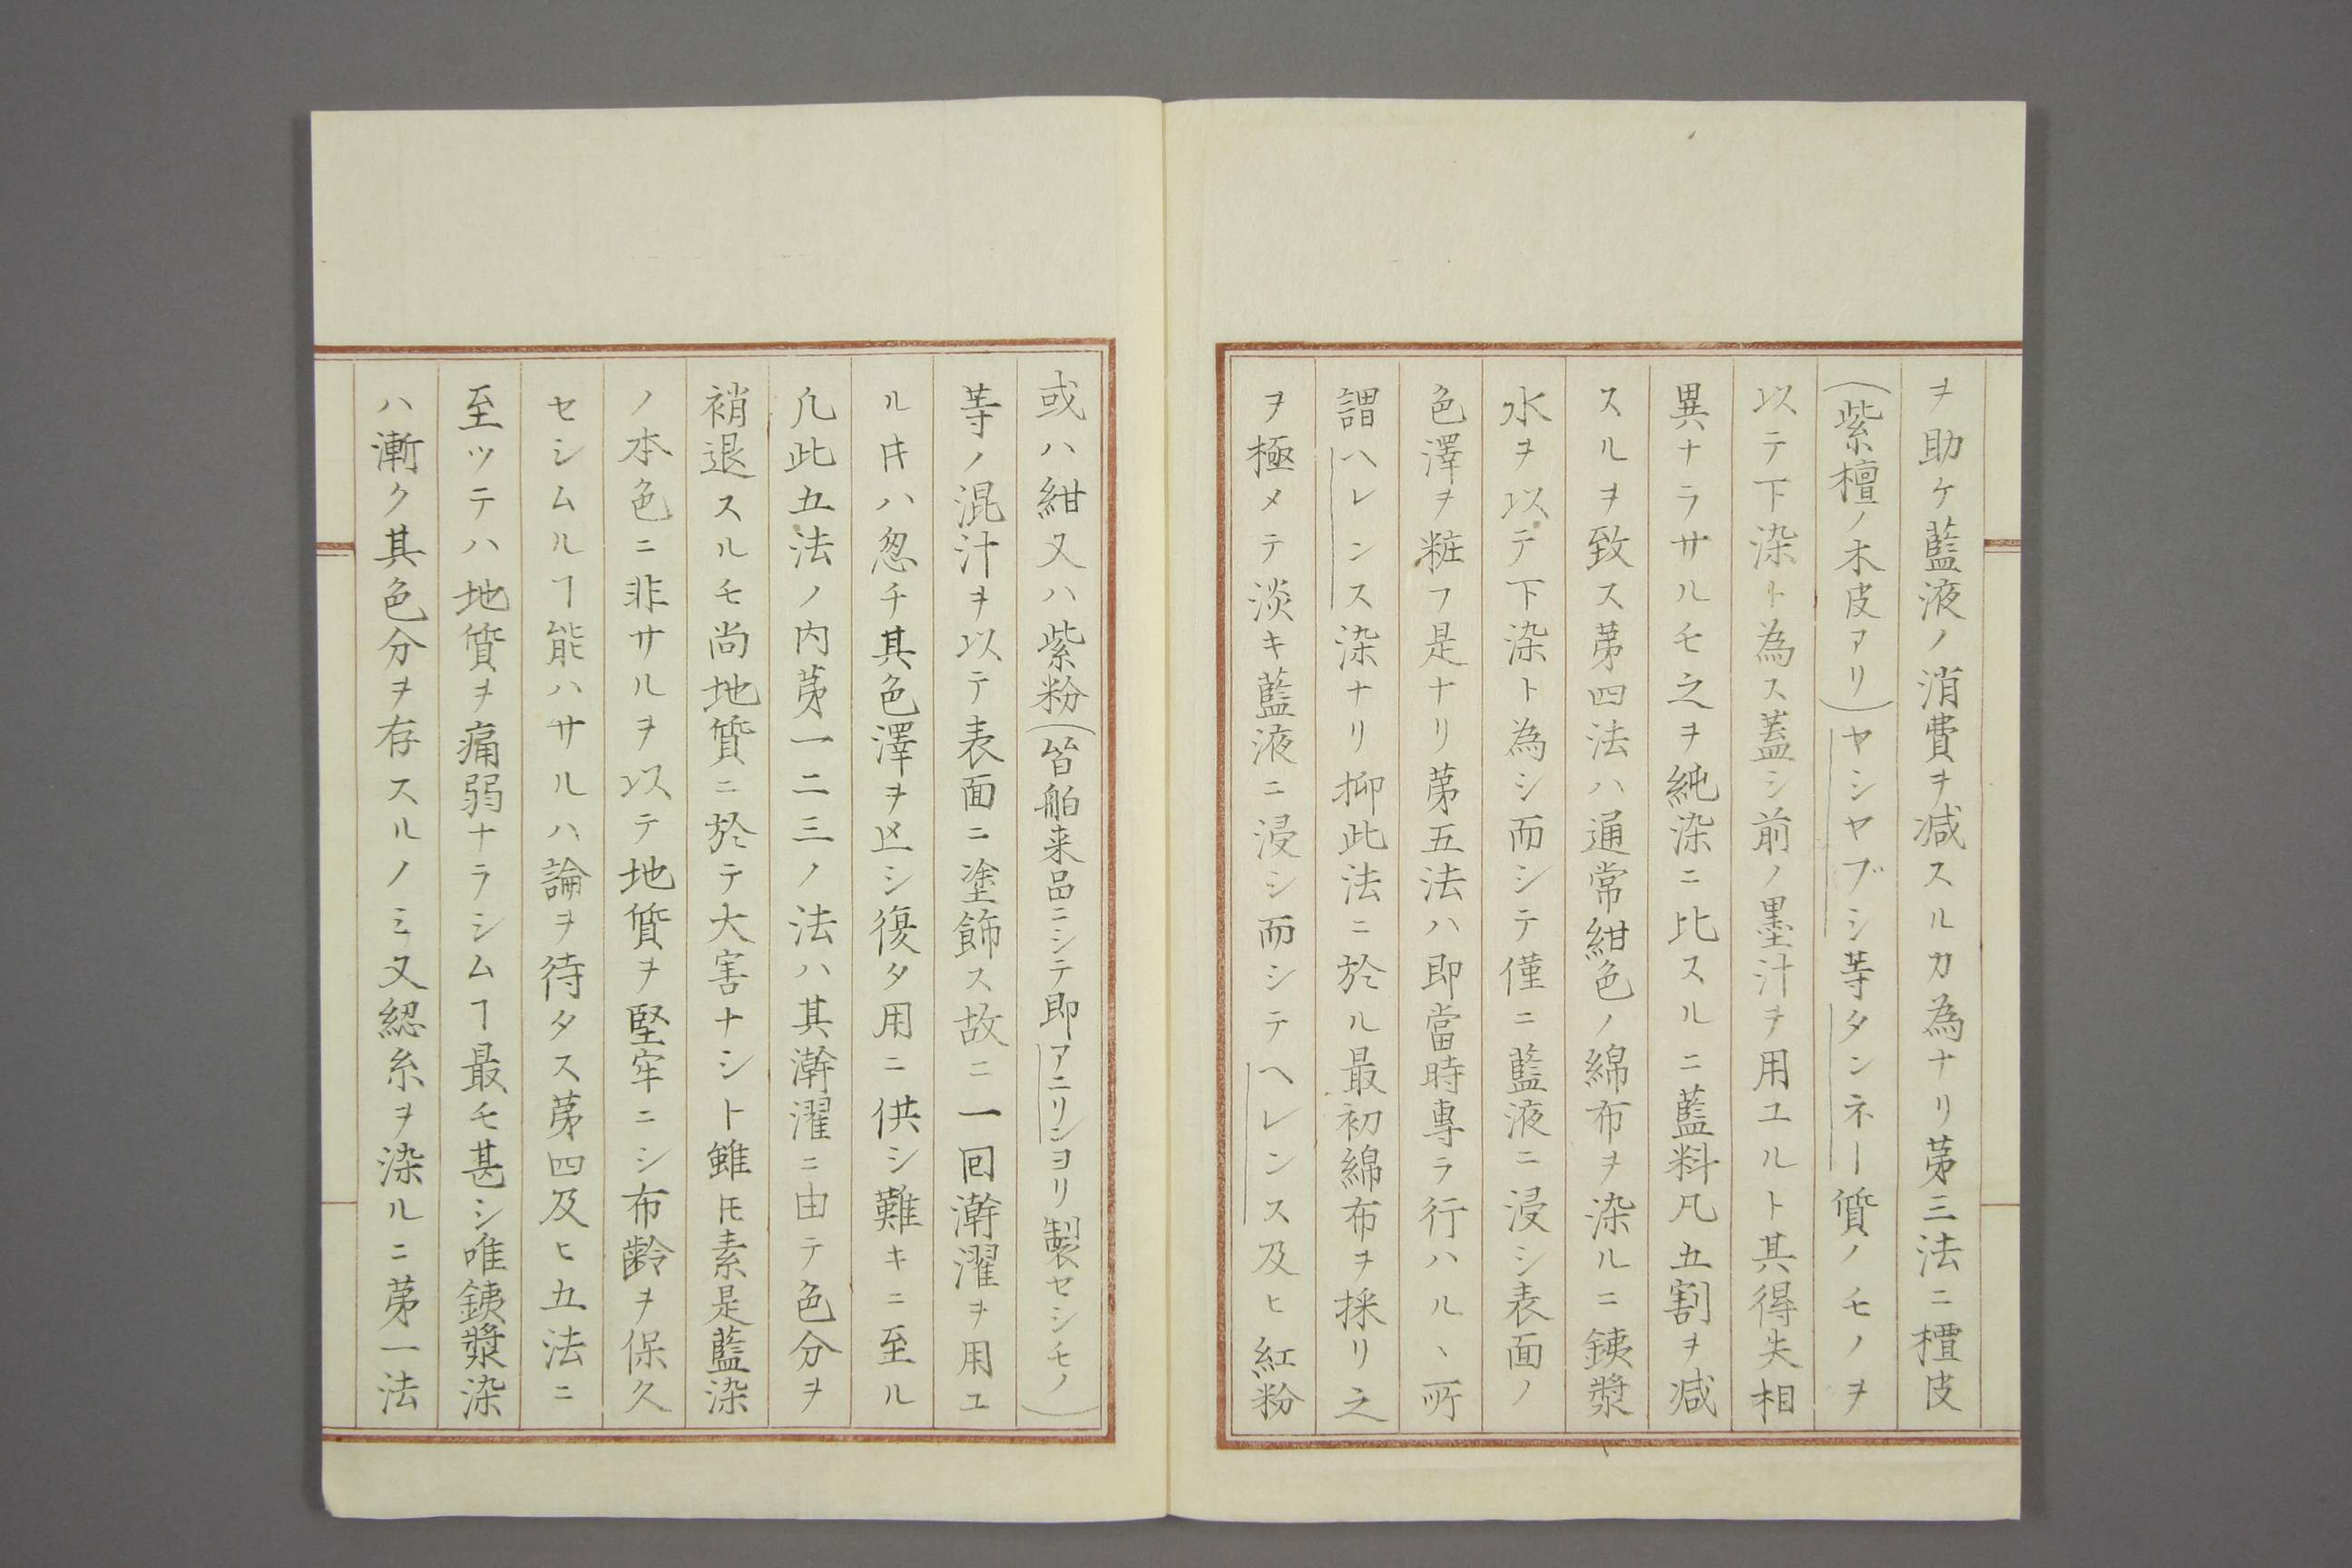 ヲ助ケ藍液ノ消費ヲ减スルカ為ナリ苐三法ニ檀皮
(紫檀ノ木皮アリ)ヤシヤブシ等タンネー質ノモノヲ
以テ下染ト為ス蓋シ前ノ墨汁ヲ用ユルト其得失相
異ナラサルモ之ヲ純染ニ比スルニ藍料凡五割ヲ减
スルヲ致ス苐四法ハ通常紺色ノ綿布ヲ染ルニ銕漿
水ヲ以テ下染ト為シ而シテ僅ニ藍液ニ浸シ表面ノ
色澤ヲ粧フ是ナリ苐五法ハ即當時專ラ行ハル、所
謂ヘレンス染ナリ抑此法ニ於ル最初綿布ヲ採リ之
ヲ極メテ淡キ藍液ニ浸シ而シテヘレンス及ヒ紅粉
或ハ紺又ハ紫粉(皆舶来品ニシテ即アニリンヨリ製セシモノ)
等ノ混汁ヲ以テ表面ニ塗飾ス故ニ一回澣濯ヲ用ユ
ル𪜈ハ忽チ其色澤ヲ亾シ復タ用ニ供シ難キニ至ル
凡此五法ノ内苐一二三ノ法ハ其澣濯ニ由テ色分ヲ
褙退スルモ尚地質ニ於テ大害ナシト雖𪜈素是藍染
ノ本色ニ非サルヲ以テ地質ヲ堅牢ニシ布齢ヲ保久
セシムルヿ能ハサルハ論ヲ待タス苐四及ヒ五法ニ
至ツテハ地質ヲ痛弱ナラシムヿ最モ甚シ唯銕漿染
ハ漸ク其色分ヲ存スルノミ又綛糸ヲ染ルニ苐一法